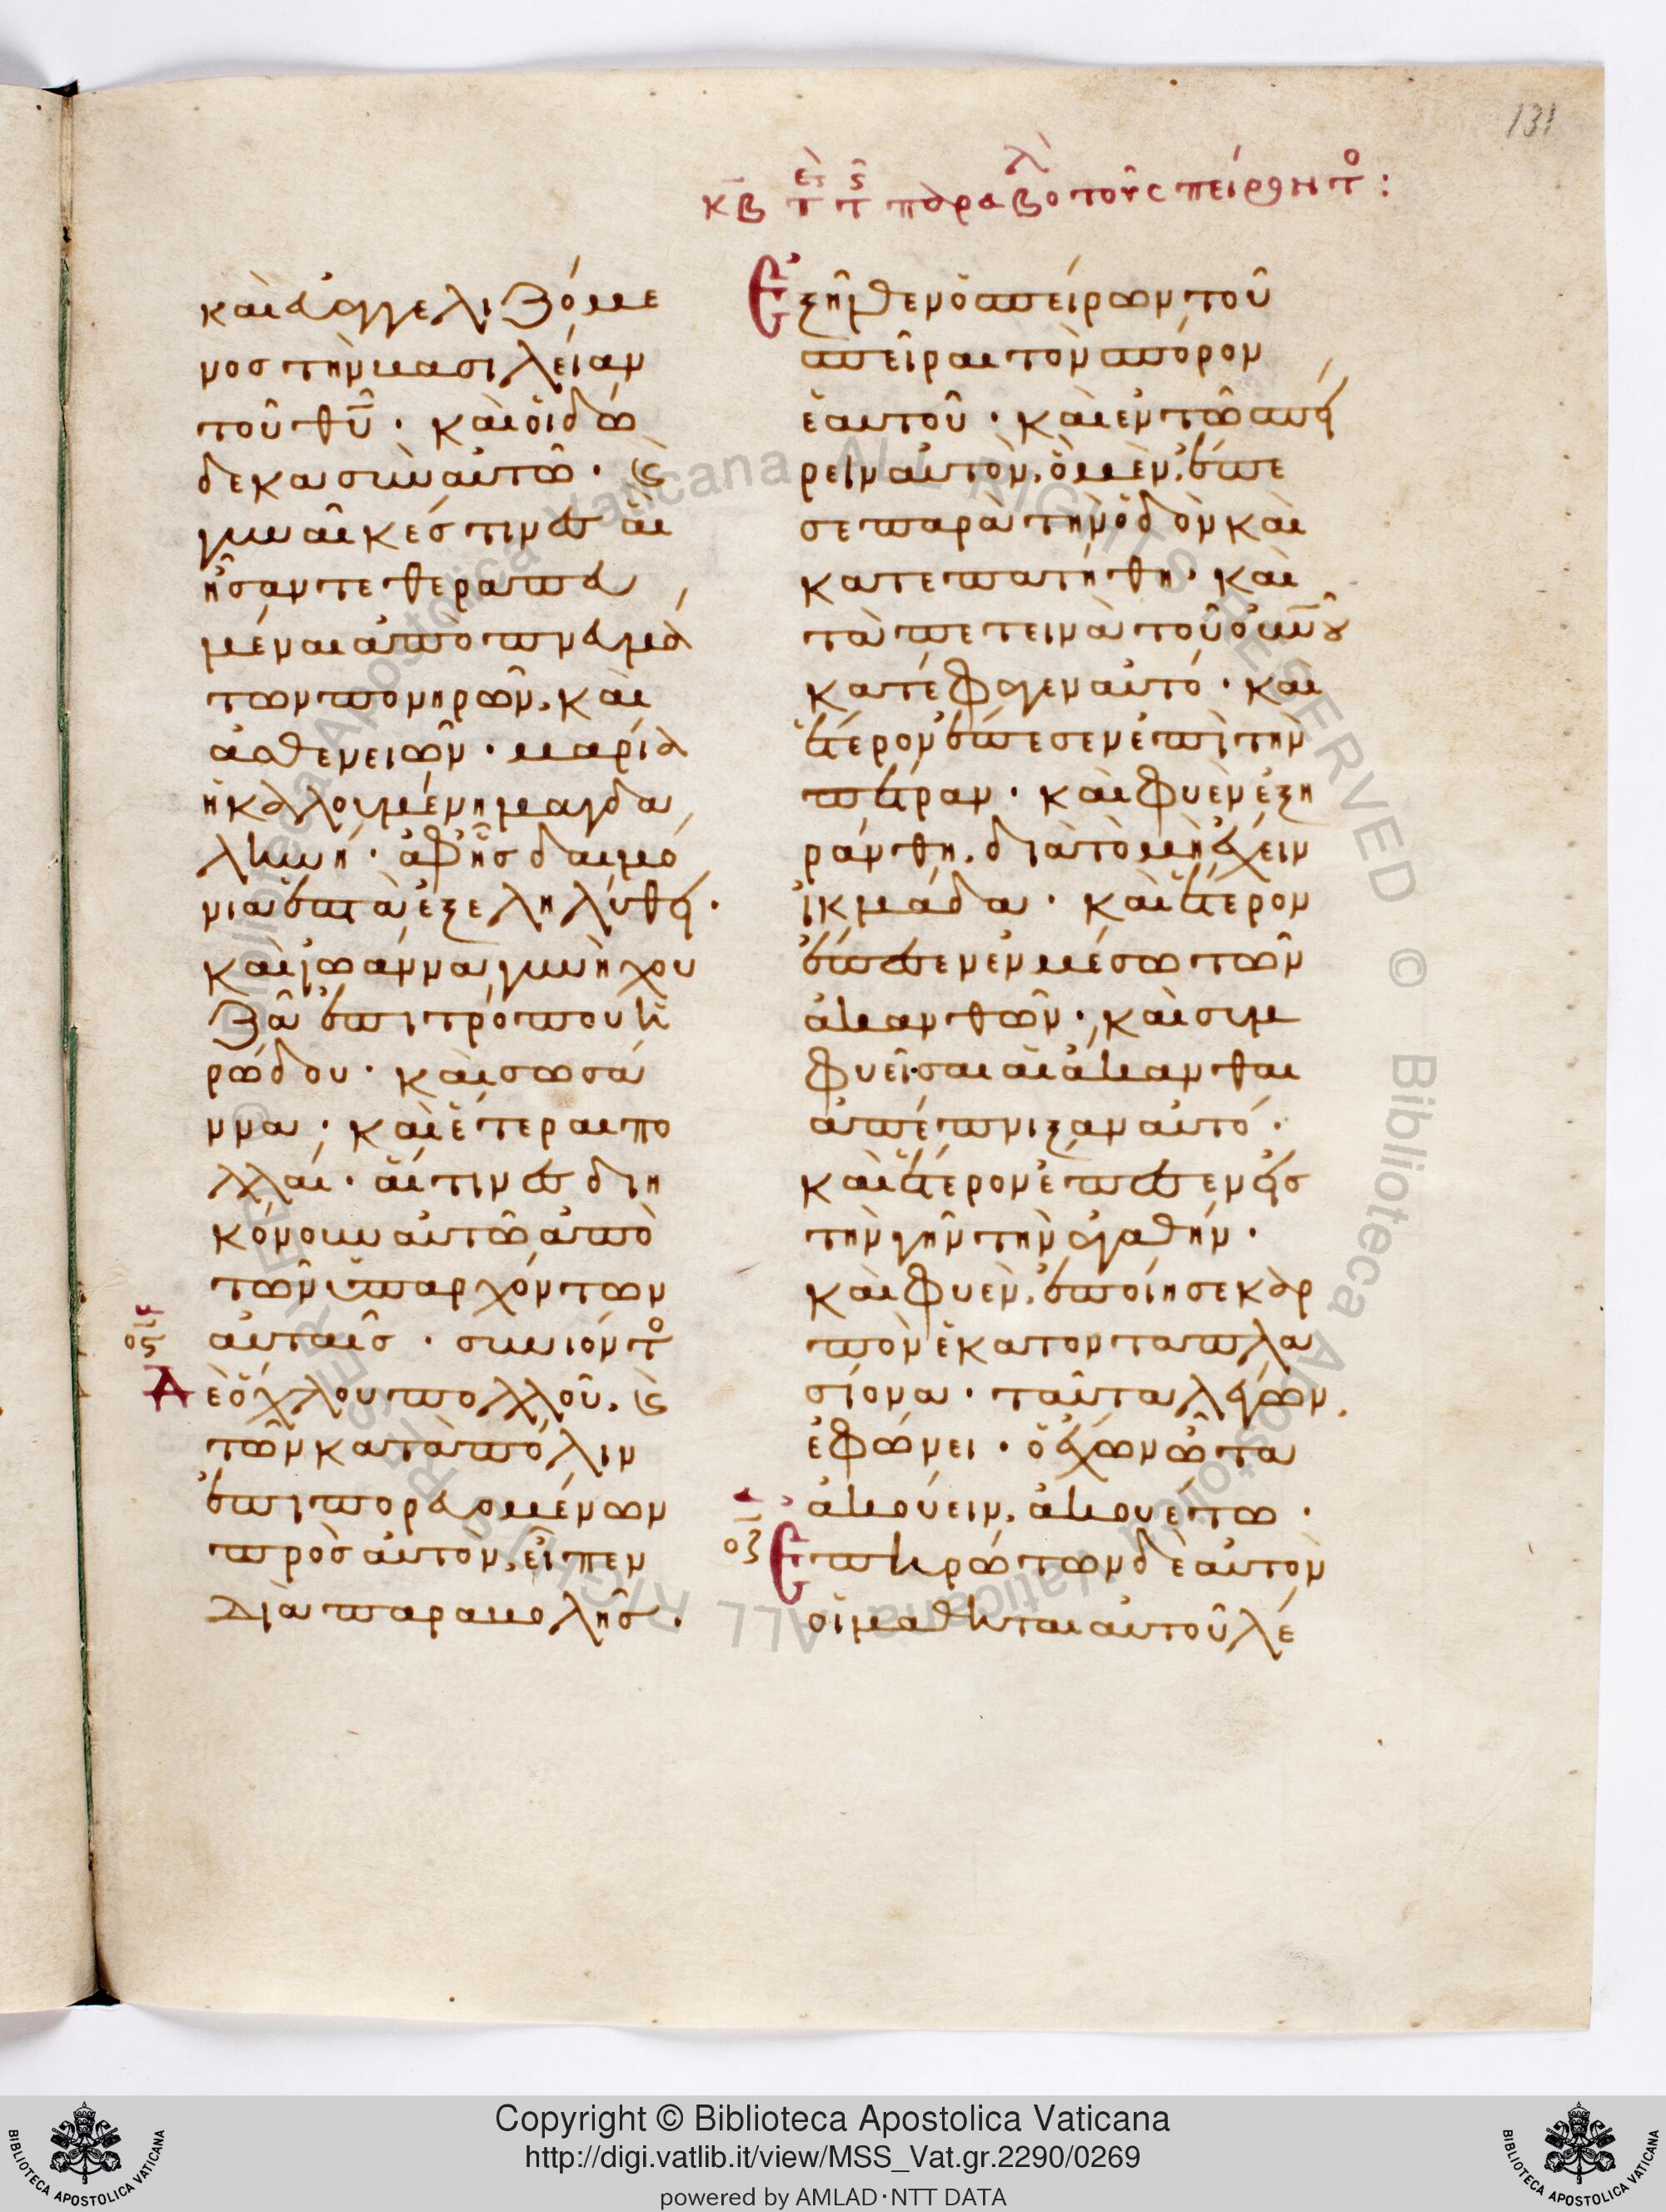 131
κβ τ τ παραβο τοῦ σπείροντο :
καὶ εὐαγγελιζόμε
νος τὴν βασιλείαν
τοῦ θυ̅ · καὶ οἱ δώ
δεκα σὺν αὐτῶ · καὶ
γυναῖκές τινες αἳ
ἦσαν τεθεραπευ
μέναι ἀπὸ πνευμά
των πονηρῶν, καὶ
ἀσθενειῶν · μαρία
ἡ καλλουμένη μαγδα
ληνή · ἀφ' ἧς δαιμό
νια ἑπτὰ ἐξεληλύθει ·
καὶ ἰωάννα γυνὴ χου
ζᾶ ἐπιτρόπου ἡ
ρώδου · καὶ σωσά
ννα · καὶ ἕτεραι πο
λλαί · αἵτινες διη
κόνουν αὐτῶ ἀπὸ
τῶν ὑπαρχόντων
αὐταῖς · συνιόντο
ὲ ὄχλου πολλοῦ, καὶ
τῶν κατὰ πόλιν
ἐπιπορευομένων
πρὸς αὐτὸν, εἶπεν
διὰ παραβολῆς ·
Ἐξῆλθεν ὁ σπείρων τοῦ
σπεῖραι τὸν σπόρον
ἑαυτοῦ · καὶ ἐν τῶ σπεί
ρειν αὐτὸν, ὃ μὲν, ἔπε
σε παρὰ τὴν ὁδὸν καὶ
κατεπατήθη · καὶ
τὰ πετεινὰ τοῦ οὐνου
κατέφαγεν αὐτό · καὶ
ἕτερον ἔπεσεν ἐπὶ τὴν
πέτραν · καὶ φυὲν ἐξη
ράνθη, διὰ τὸ μὴ ἔχειν
ἰκμάδα · καὶ ἕτερον
ἔπεσεν ἐν μέσω τῶν
ἀκανθῶν · καὶ συμ
φυεῖσαι αἱ ἄκανθαι
ἀπέπνιξαν αὐτό ·
καὶ ἕτερον ἔπεσεν εἰς
τὴν γῆν τὴν ἀγαθήν ·
καὶ φυὲν, ἐποίησε καρ
πὸν ἑκατονταπλα
σίονα · ταῦτα λέγων,
ἐφώνει · ὁ ἔχων ὦτα
ἀκούειν, ἀκουέτω ·
οζ
Ἐπηρώτων δὲ αὐτὸν
οἱ μαθηταὶ αὐτοῦ λέ
Copyright © Biblioteca Apostolica Vaticana
http://digi.vatlib.it/view/MSS_Vat.gr.2290/0269
powered by AMLAD·NTT DATA
BIBLIOTECA APOSTOLICA VATICANA
BIBLIOTECA APOSTOLICA VATICANA